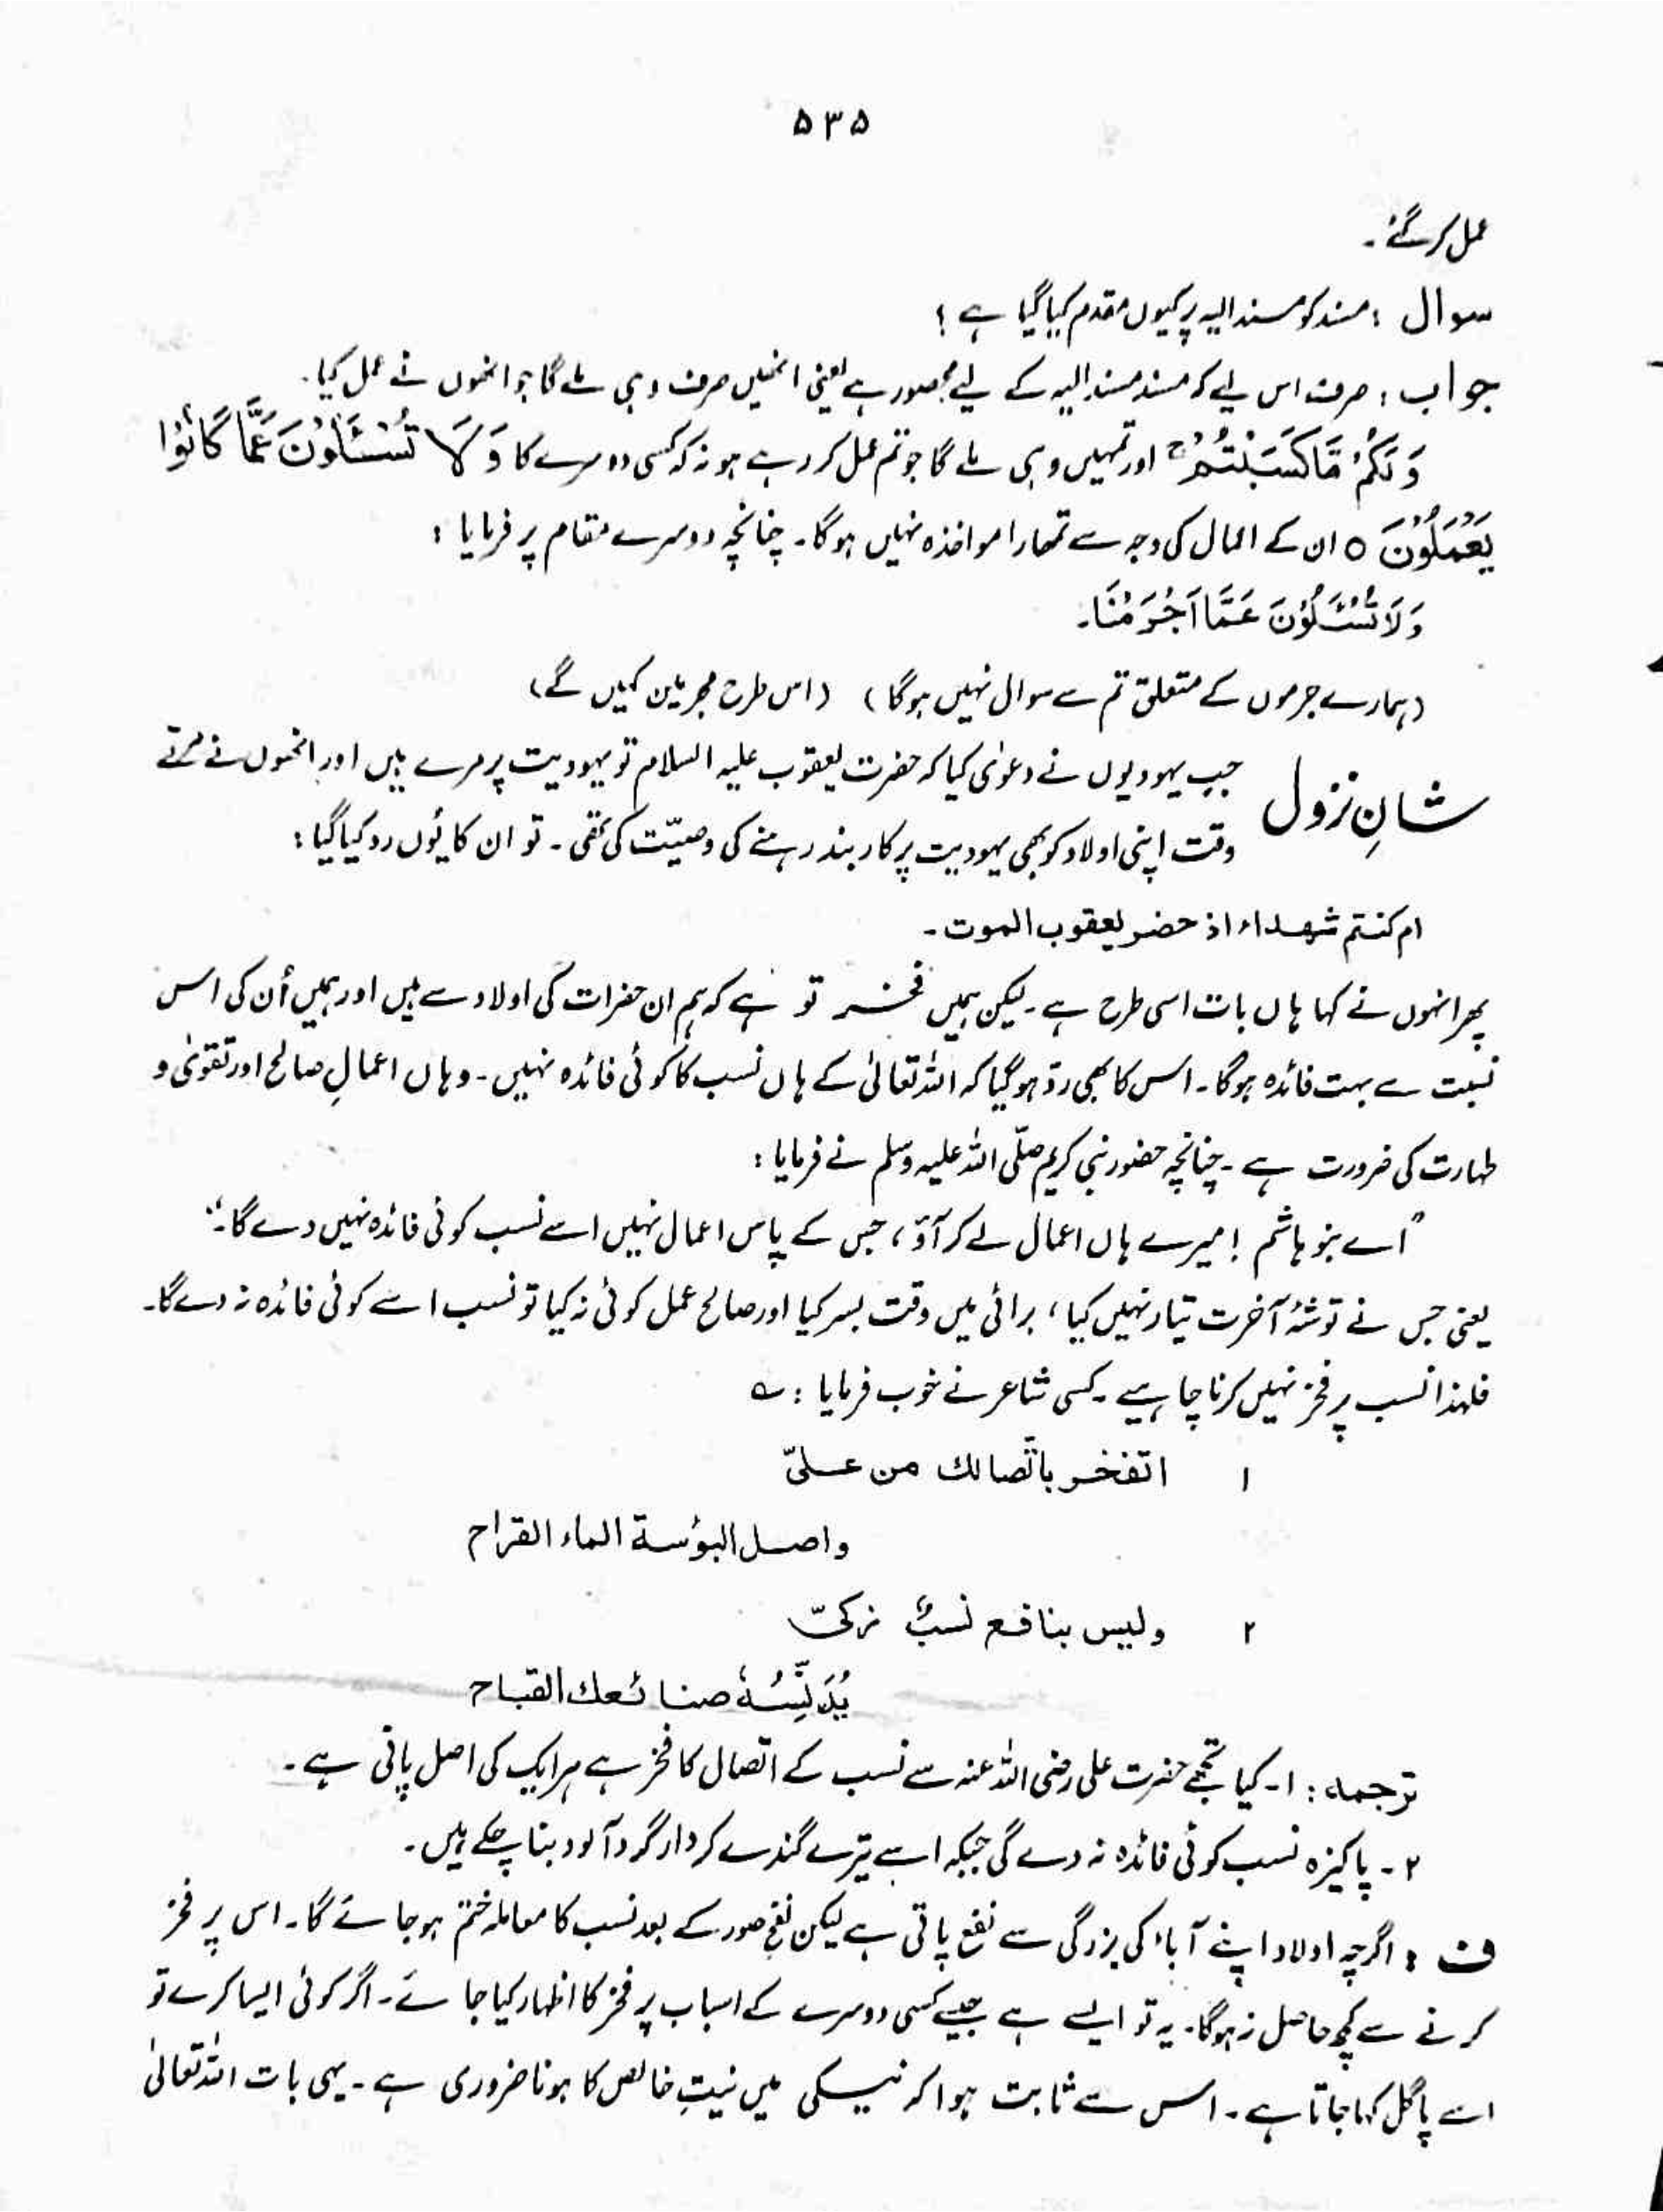 ۵۳۵
عمل کر گئے۔
سوال : مسند کو مسند الیہ پر کیوں مقدم کیا گیا ہے ؟
جواب : صرف اس لیے کہ مسند مسند الیہ کے لیے محصور ہے یعنی انھیں صرف وہی ملے گا جو انھوں نے عمل کیا۔
وَلَكُمْ مَّا كَسَبْتُمْ ۚ اور تمہیں وہی ملے گا جو تم عمل کر رہے ہو نہ کہ کسی دوسرے کا وَ لَا تُسْئَلُوْنَ عَمَّا كَانُوْا
يَعْمَلُوْنَ ○ ان کے اعمال کی وجہ سے تمھارا مواخذہ نہیں ہوگا۔ چنانچہ دوسرے مقام پر فرمایا :
وَلَا تُسْئَلُوْنَ عَمَّا اَجْرَمْنَا۔
(ہمارے جرموں کے متعلق تم سے سوال نہیں ہوگا) (اس طرح مجرمین کہیں گے)
شانِ نزول جب یہودیوں نے دعوٰی کیا کہ حضرت یعقوب علیہ السلام تو یہودیت پر مرے ہیں اور انھوں نے مرتے
وقت اپنی اولاد کو بھی یہودیت پر کاربند رہنے کی وصیّت کی تھی۔ تو ان کا یُوں رد کیا گیا :
ام كنتم شهداء اذ حضر يعقوب الموت۔
پھر انہوں نے کہا ہاں بات اسی طرح ہے۔ لیکن ہمیں فخر تو ہے کہ ہم ان حضرات کی اولاد سے ہیں اور ہمیں اُن کی اس
نسبت سے بہت فائدہ ہوگا۔ اس کا بھی ردّ ہو گیا کہ اللہ تعالیٰ کے ہاں نسب کا کوئی فائدہ نہیں۔ وہاں اعمالِ صالح اور تقویٰ و
طہارت کی ضرورت ہے۔ چنانچہ حضور نبی کریم صلّی اللہ علیہ وسلم نے فرمایا :
"اے بنو ہاشم ! میرے ہاں اعمال لے کر آؤ، جس کے پاس اعمال نہیں اسے نسب کوئی فائدہ نہیں دے گا۔"
یعنی جس نے توشۂ آخرت تیار نہیں کیا، برائی میں وقت بسر کیا اور صالح عمل کوئی نہ کیا تو نسب اسے کوئی فائدہ نہ دے گا۔
فلہذا نسب پر فخر نہیں کرنا چاہیے۔ کسی شاعر نے خوب فرمایا : ؎
۱ اتفخر باتّصالك من علىّ
واصل البؤسة الماء القراح
۲ وليس بنافع نسبٌ زكىّ
يُدَنِّسُهٗ صنائعك القباح
ترجمہ : ۱۔ کیا تجھے حضرت علی رضی اللہ عنہ سے نسب کے اتصال کا فخر ہے ہر ایک کی اصل پانی ہے۔
۲۔ پاکیزہ نسب کوئی فائدہ نہ دے گی جبکہ اسے تیرے گندے کردار گرد آلود بنا چکے ہیں۔
ف : اگرچہ اولاد اپنے آباء کی بزرگی سے نفع پاتی ہے لیکن نفخِ صور کے بعد نسب کا معاملہ ختم ہو جائے گا۔ اس پر فخر
کرنے سے کچھ حاصل نہ ہوگا۔ یہ تو ایسے ہے جیسے کسی دوسرے کے اسباب پر فخر کا اظہار کیا جائے۔ اگر کوئی ایسا کرے تو
اسے پاگل کہا جاتا ہے۔ اس سے ثابت ہوا کہ نیکی میں نیتِ خالص کا ہونا ضروری ہے۔ یہی بات اللہ تعالیٰ